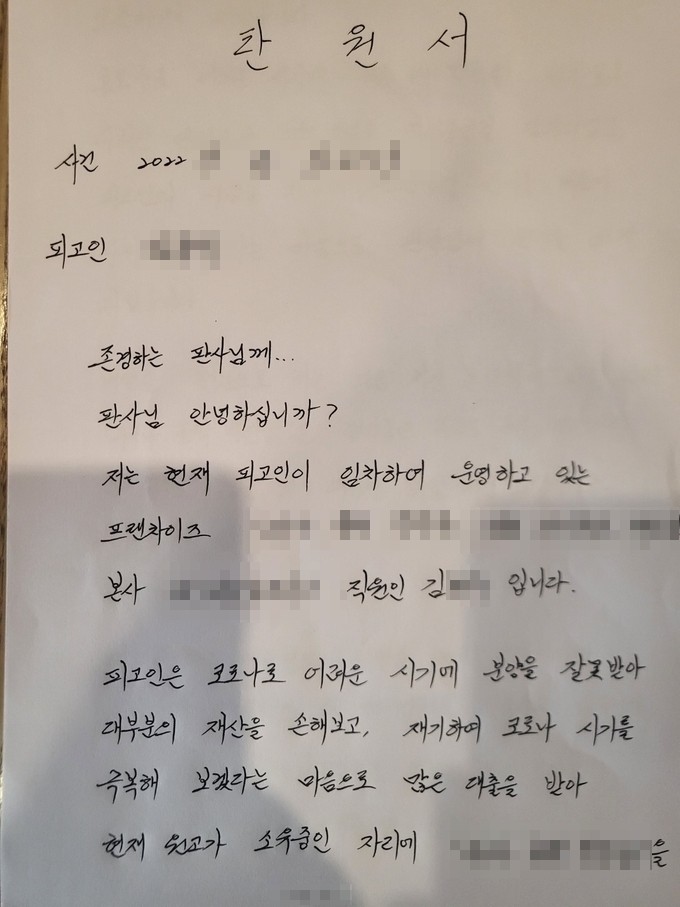 탄 원 서
사건 2022
피고인
존경하는 판사님께...
판사님 안녕하십니까?
저는 현재 피고인이 임차하여 운영하고 있는
프랜차이즈
본사 직원인 김 입니다.
피고인은 코로나로 어려운 시기에 분양을 잘못받아
대부분의 재산을 손해보고, 재기하여 코로나 시기를
극복해 보겠다는 마음으로 많은 대출을 받아
현재 원고가 소유중인 자리에 을